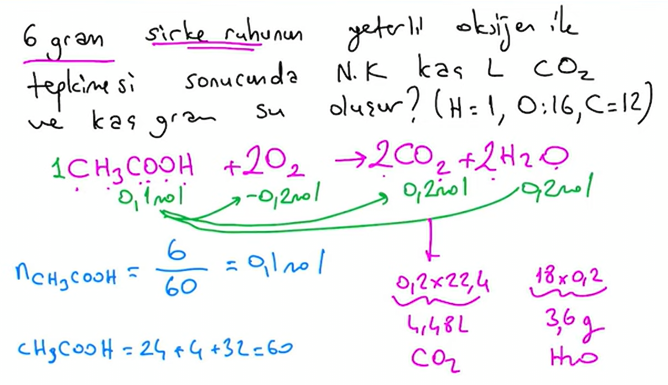 6 gram sirke ruhunun yeterli oksijen ile
tepkimesi sonucunda N.K kaç L CO₂
ve kaç gram su oluşur? (H=1, O:16, C=12)
1CH₃COOH +2O₂ → 2CO₂ + 2H₂O
0,1mol -0,2mol 0,2mol 0,2mol
nCH₃COOH = 6/60 = 0,1mol
0,2x22,4 18x0,2
4,48L 3,6g
CO₂ H₂O
CH₃COOH = 24 + 4 + 32 = 60